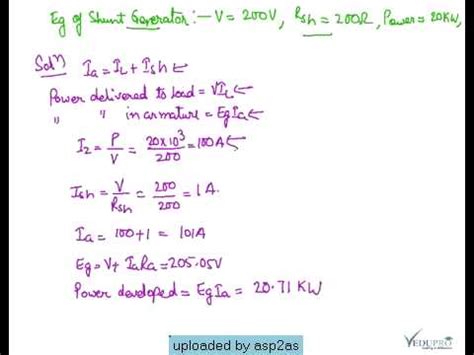 Eg of Shunt Generator:- V = 200V, Rsh = 200Ω, Power = 20KW,
Solⁿ) Ia = IL + Ish ←
Power delivered to load = VIL ←
" " in armature = EgIa ←
IL = P/V = 20×10³/200 = 100A ←
Ish = V/Rsh = 200/200 = 1A.
Ia = 100+1 = 101A
Eg = V+ IaRa = 205.05V
Power developed = EgIa = 20.71 KW
VEDUPRO
uploaded by asp2as